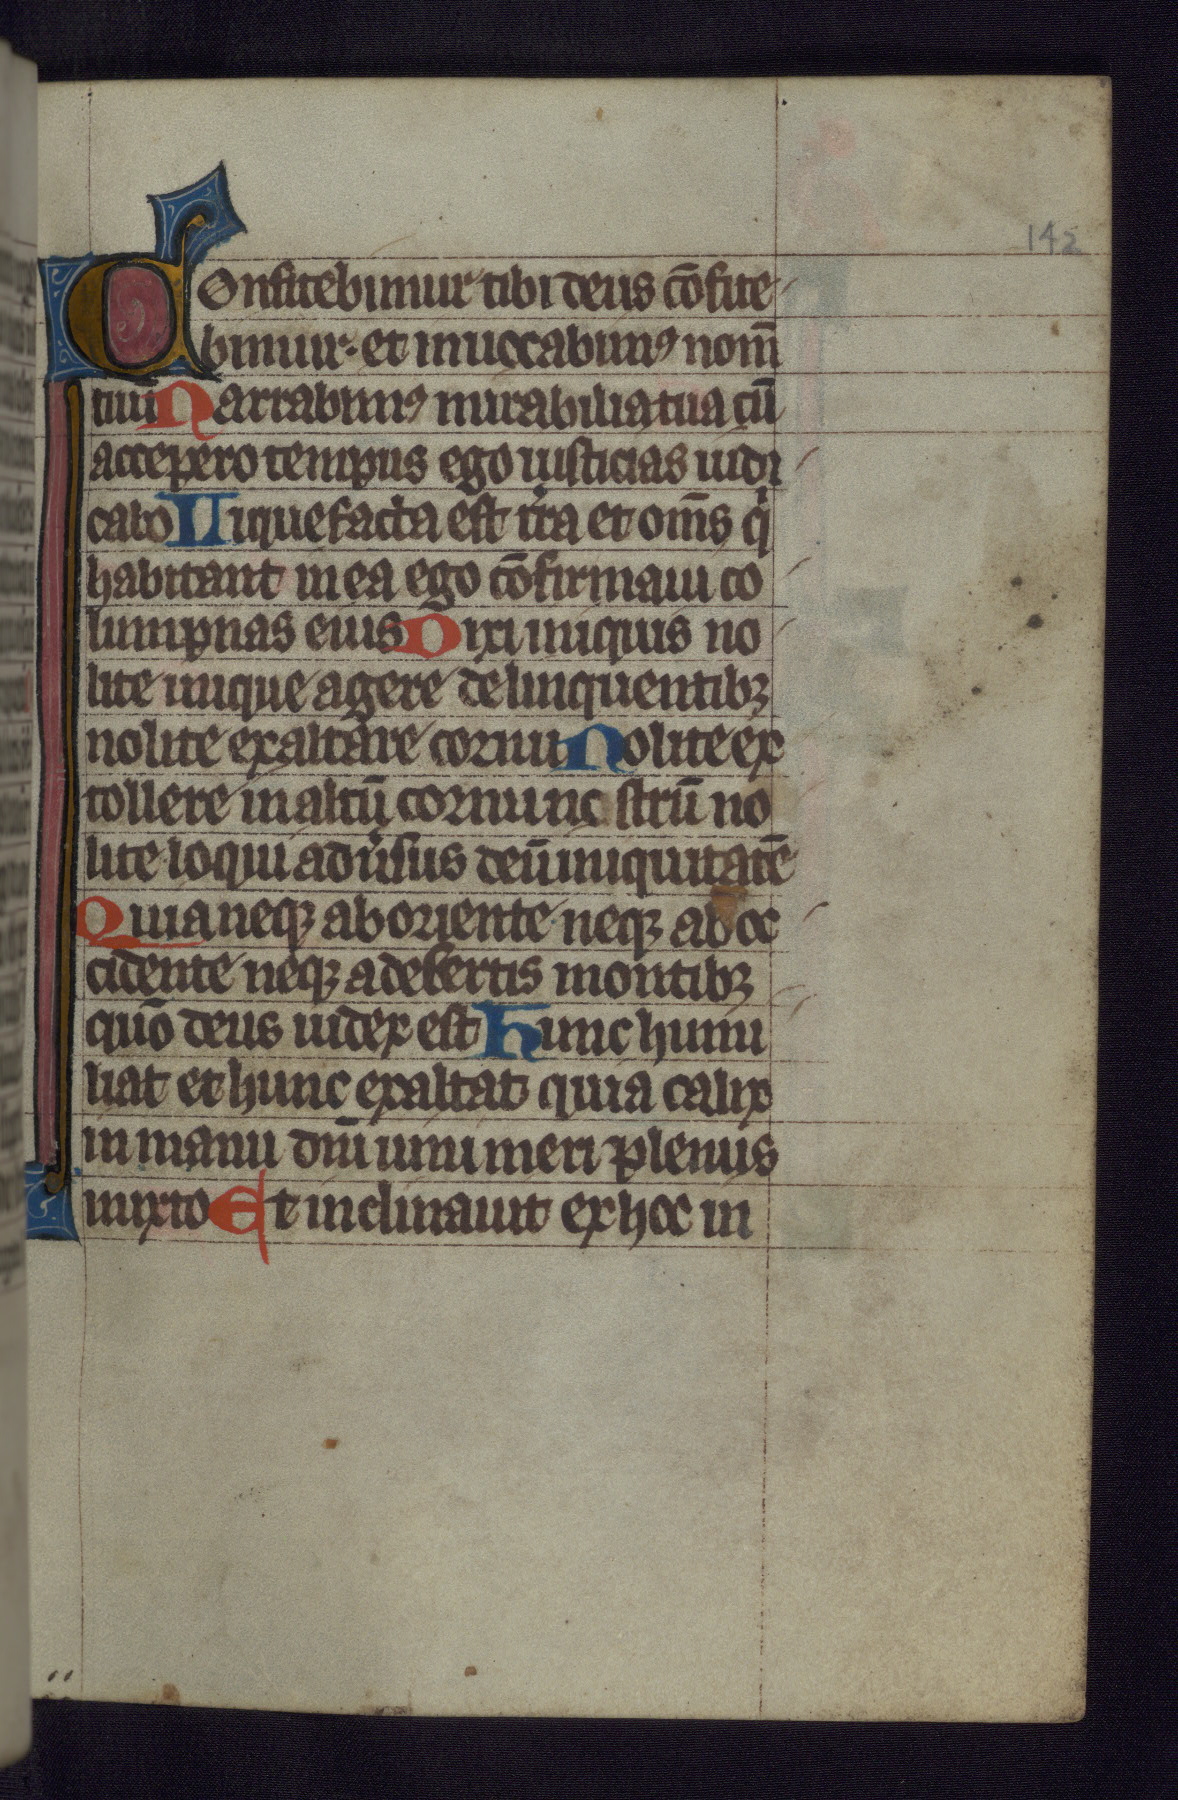 142
Confitebimur tibi deus c̄ofite
bimur. et inuocabimꝰ nom̄
tuū Narrabimꝰ mirabilia tua cū
accepero tempus ego iusticias iudi
cabo Liquefacta est t̄ra et om̄s q̄
habitant in ea ego c̄ofirmaui co
lumpnas eius Dixi iniquis no
lite inique agere delinquentibꝫ
nolite exaltare cornu Nolite ex
tollere in altū cornu ue strū no
lite loqui adūsus deū iniquitatē
Quia neqꝫ ab oriente neqꝫ ab oc
cidente neqꝫ a desertis montibꝫ
quō deus iudex est Hunc humi
liat et hunc exaltat quia calix
in manu dn̄i uini meri plenus
mixto Et inclinauit ex hoc in